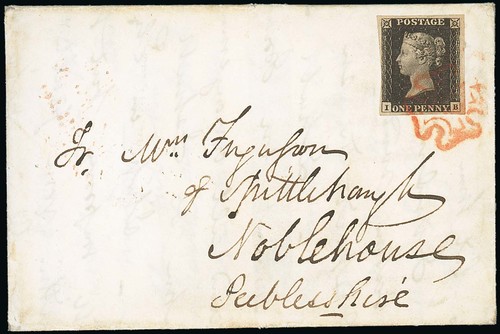 POSTAGE
I ONE PENNY B
Fr Wm Ferguson
of Spittlehaugh
Noblehouse
Peeblesshire